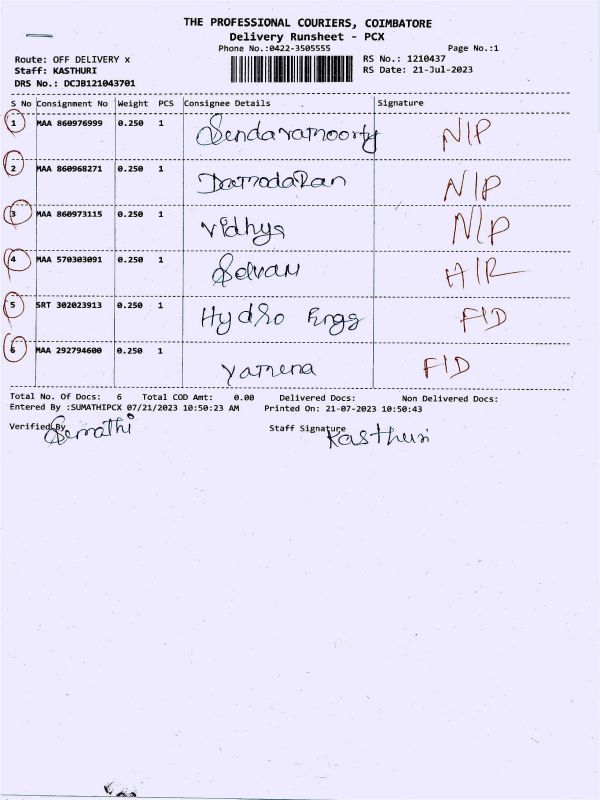 THE PROFESSIONAL COURIERS, COIMBATORE
Delivery Runsheet - PCX
Phone No.:0422-3505555 Page No.:1
Route: OFF DELIVERY x RS No.: 1210437
Staff: KASTHURI RS Date: 21-Jul-2023
DRS No.: DCJB121043701
S No Consignment No Weight PCS Consignee Details Signature
1 MAA 860976999 0.250 1 Sendaramoorty N/P
2 MAA 860968271 0.250 1 Damodaran N/P
3 MAA 860973115 0.250 1 Vidhya N/P
4 MAA 570303091 0.250 1 Selvam
5 SRT 302023913 0.250 1 Hydro Engg F/D
6 MAA 292794600 0.250 1 Yamena F/D
Total No. Of Docs: 6 Total COD Amt: 0.00 Delivered Docs: Non Delivered Docs:
Entered By :SUMATHIPCX 07/21/2023 10:50:23 AM Printed On: 21-07-2023 10:50:43
Verified By Sumathi Staff Signature Kasthuri